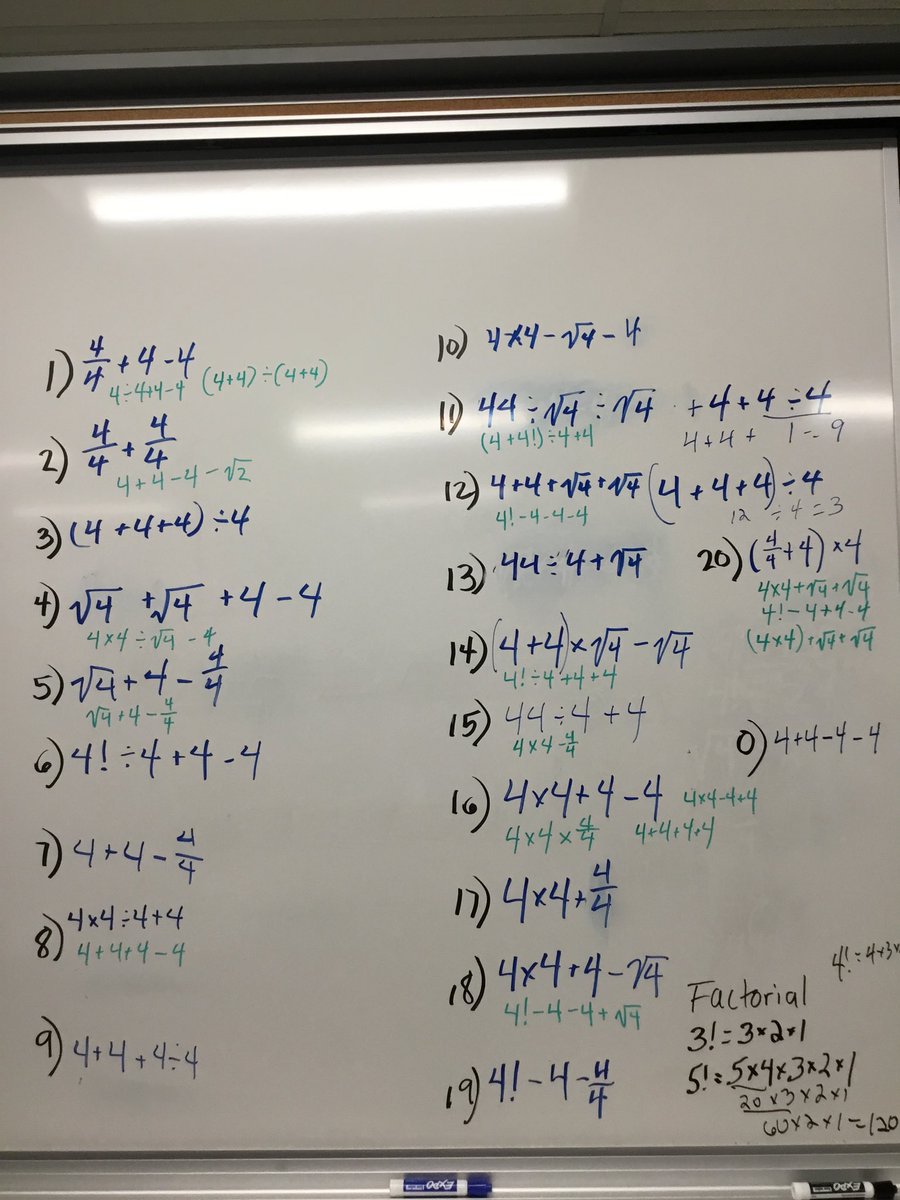 1) 4/4 + 4 - 4
4÷4+4-4 (4+4)÷(4+4)
2) 4/4 + 4/4
4+4-4-√2
3) (4+4+4)÷4
4) √4 + √4 + 4 - 4
4×4÷√4-4
5) √4 + 4 - 4/4
√4+4-4/4
6) 4!÷4+4-4
7) 4+4-4/4
8) 4×4÷4+4
4+4+4-4
9) 4+4+4÷4
10) 4×4-√4-4
11) 44÷√4÷√4 +4+4÷4
(4+4!)÷4+4 4+4+ 1=9
12) 4+4+√4+√4 (4+4+4)÷4
4!-4-4-4 12 ÷4=3
13) 44÷4+√4
14) (4+4)×√4-√4
4!÷4+4+4
15) 44÷4+4
4×4-4/4
16) 4×4+4-4 4×4-4+4
4×4×4/4 4+4+4+4
17) 4×4+4/4
18) 4×4+4-√4
4!-4-4+√4
19) 4!-4-4/4
20) (4/4+4)×4
4×4+√4+√4
4!-4+4-4
(4×4)+√4+√4
0) 4+4-4-4
4!=4×3×
Factorial
3!=3×2×1
5!=5×4×3×2×1
20×3×2×1
60×2×1=120
EXPO
EXPO